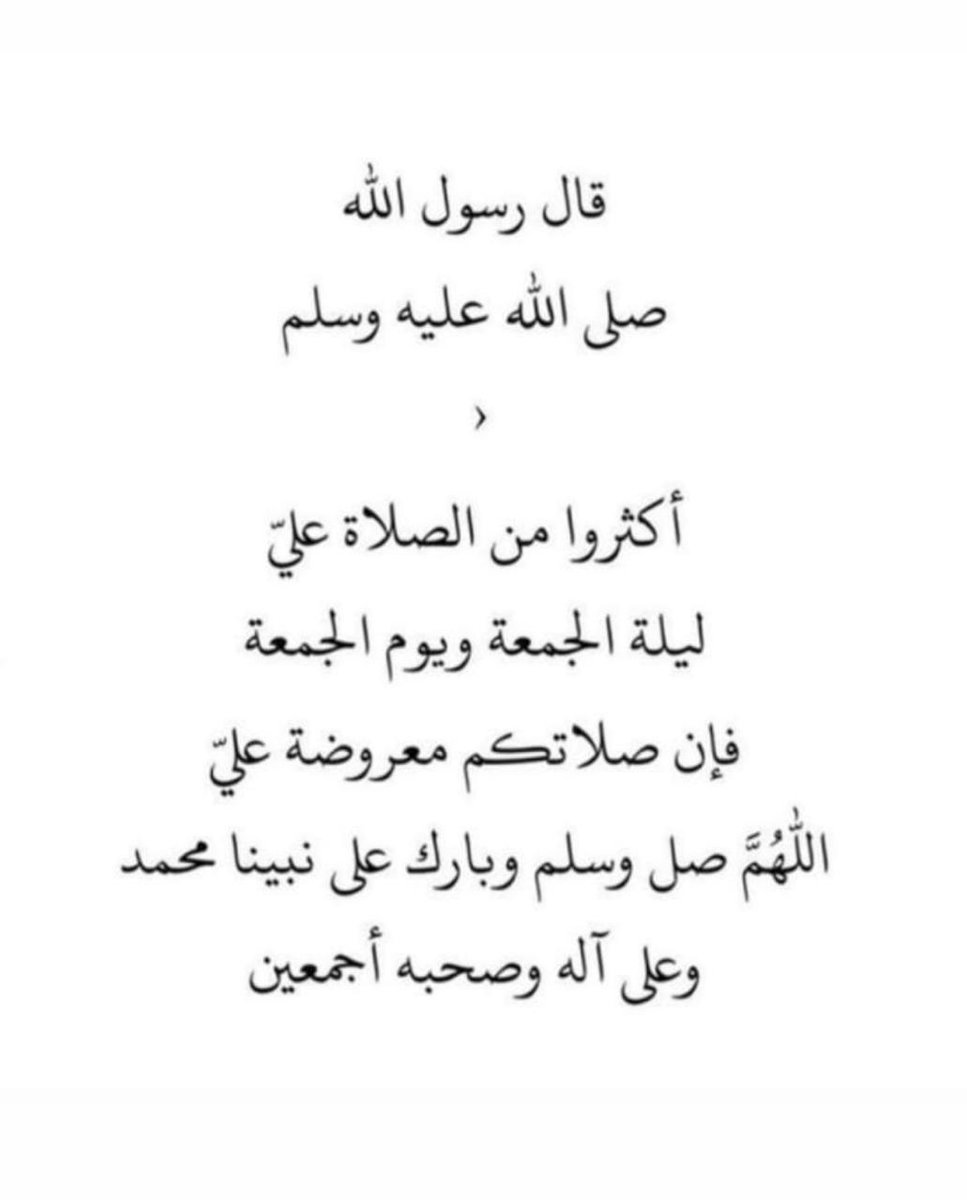 قال رسول الله
صلى الله عليه وسلم
›
أكثروا من الصلاة عليّ
ليلة الجمعة ويوم الجمعة
فإن صلاتكم معروضة عليّ
اللّٰهُمَّ صل وسلم وبارك على نبينا محمد
وعلى آله وصحبه أجمعين